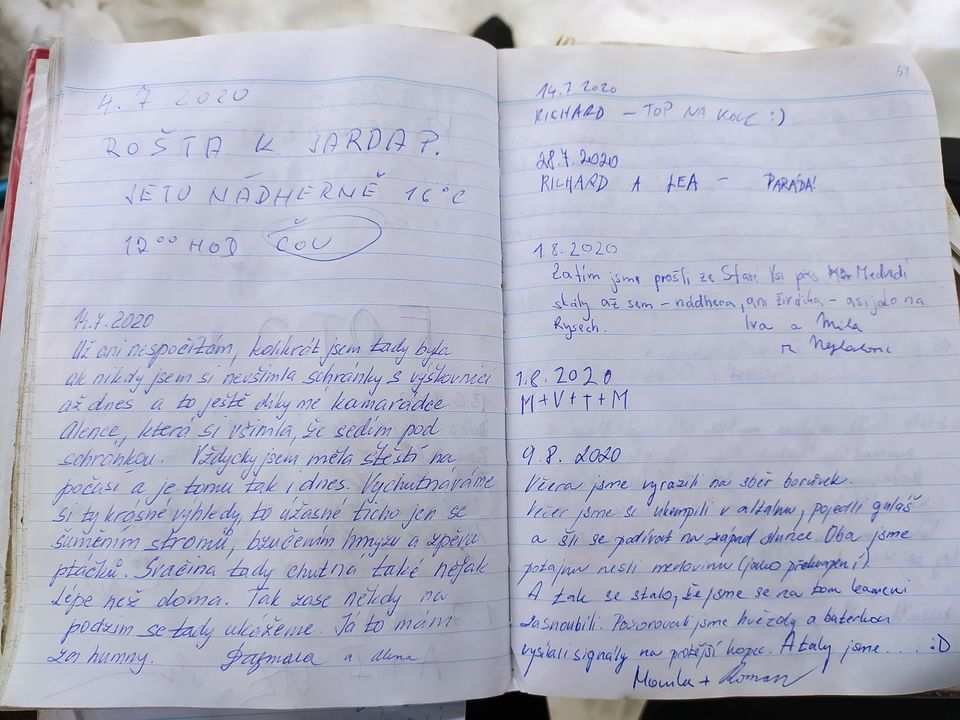 4.7.2020
ROŠTA K. JARDA P.
JETU NÁDHERNĚ 16°C
12°° HOD ČOU
14.7.2020
Už ani nespočítám, kolikrát jsem tady byla
ale nikdy jsem si nevšimla schránky s výškovnicí
až dnes a to ještě díky mé kamarádce
Alence, která si všimla, že sedím pod
schránkou. Vždycky jsem měla štěstí na
počasí a je tomu tak i dnes. Vychutnáváme
si ty krásné výhledy, to úžasné ticho jen se
šuměním stromů, bzučením hmyzu a zpěvu
ptáčků. Svačina tady chutná také nějak
lépe než doma. Tak zase někdy na
podzim se tady ukážeme. Ja to mám
za humny. Dagmara a Alena
51
14.7.2020
RICHARD – TOP NA KOLE :)
28.7.2020
RICHARD A LEA – PARÁDA!
1.8.2020
Zatím jsme prošli ze Staré Vsi přes Medvědí
skály až sem – nádhera, ani živáčka – asi jako na
Rysech. Iva a Míla
z
1.8.2020
M+V+T+M
9.8.2020
Včera jsme vyrazili na sběr borůvek.
Večer jsme se ukempili v altánu, pojedli guláš
a šli se podívat na západ slunce. Oba jsme
potajmu nesli medovinu (jako překvapení).
A tak se stalo, že jsme se na tom kameni
zasnoubili. Pozorovali jsme hvězdy a baterkou
vysílali signály na protější kopec. A taky jsme.... :D
Monika + Roman